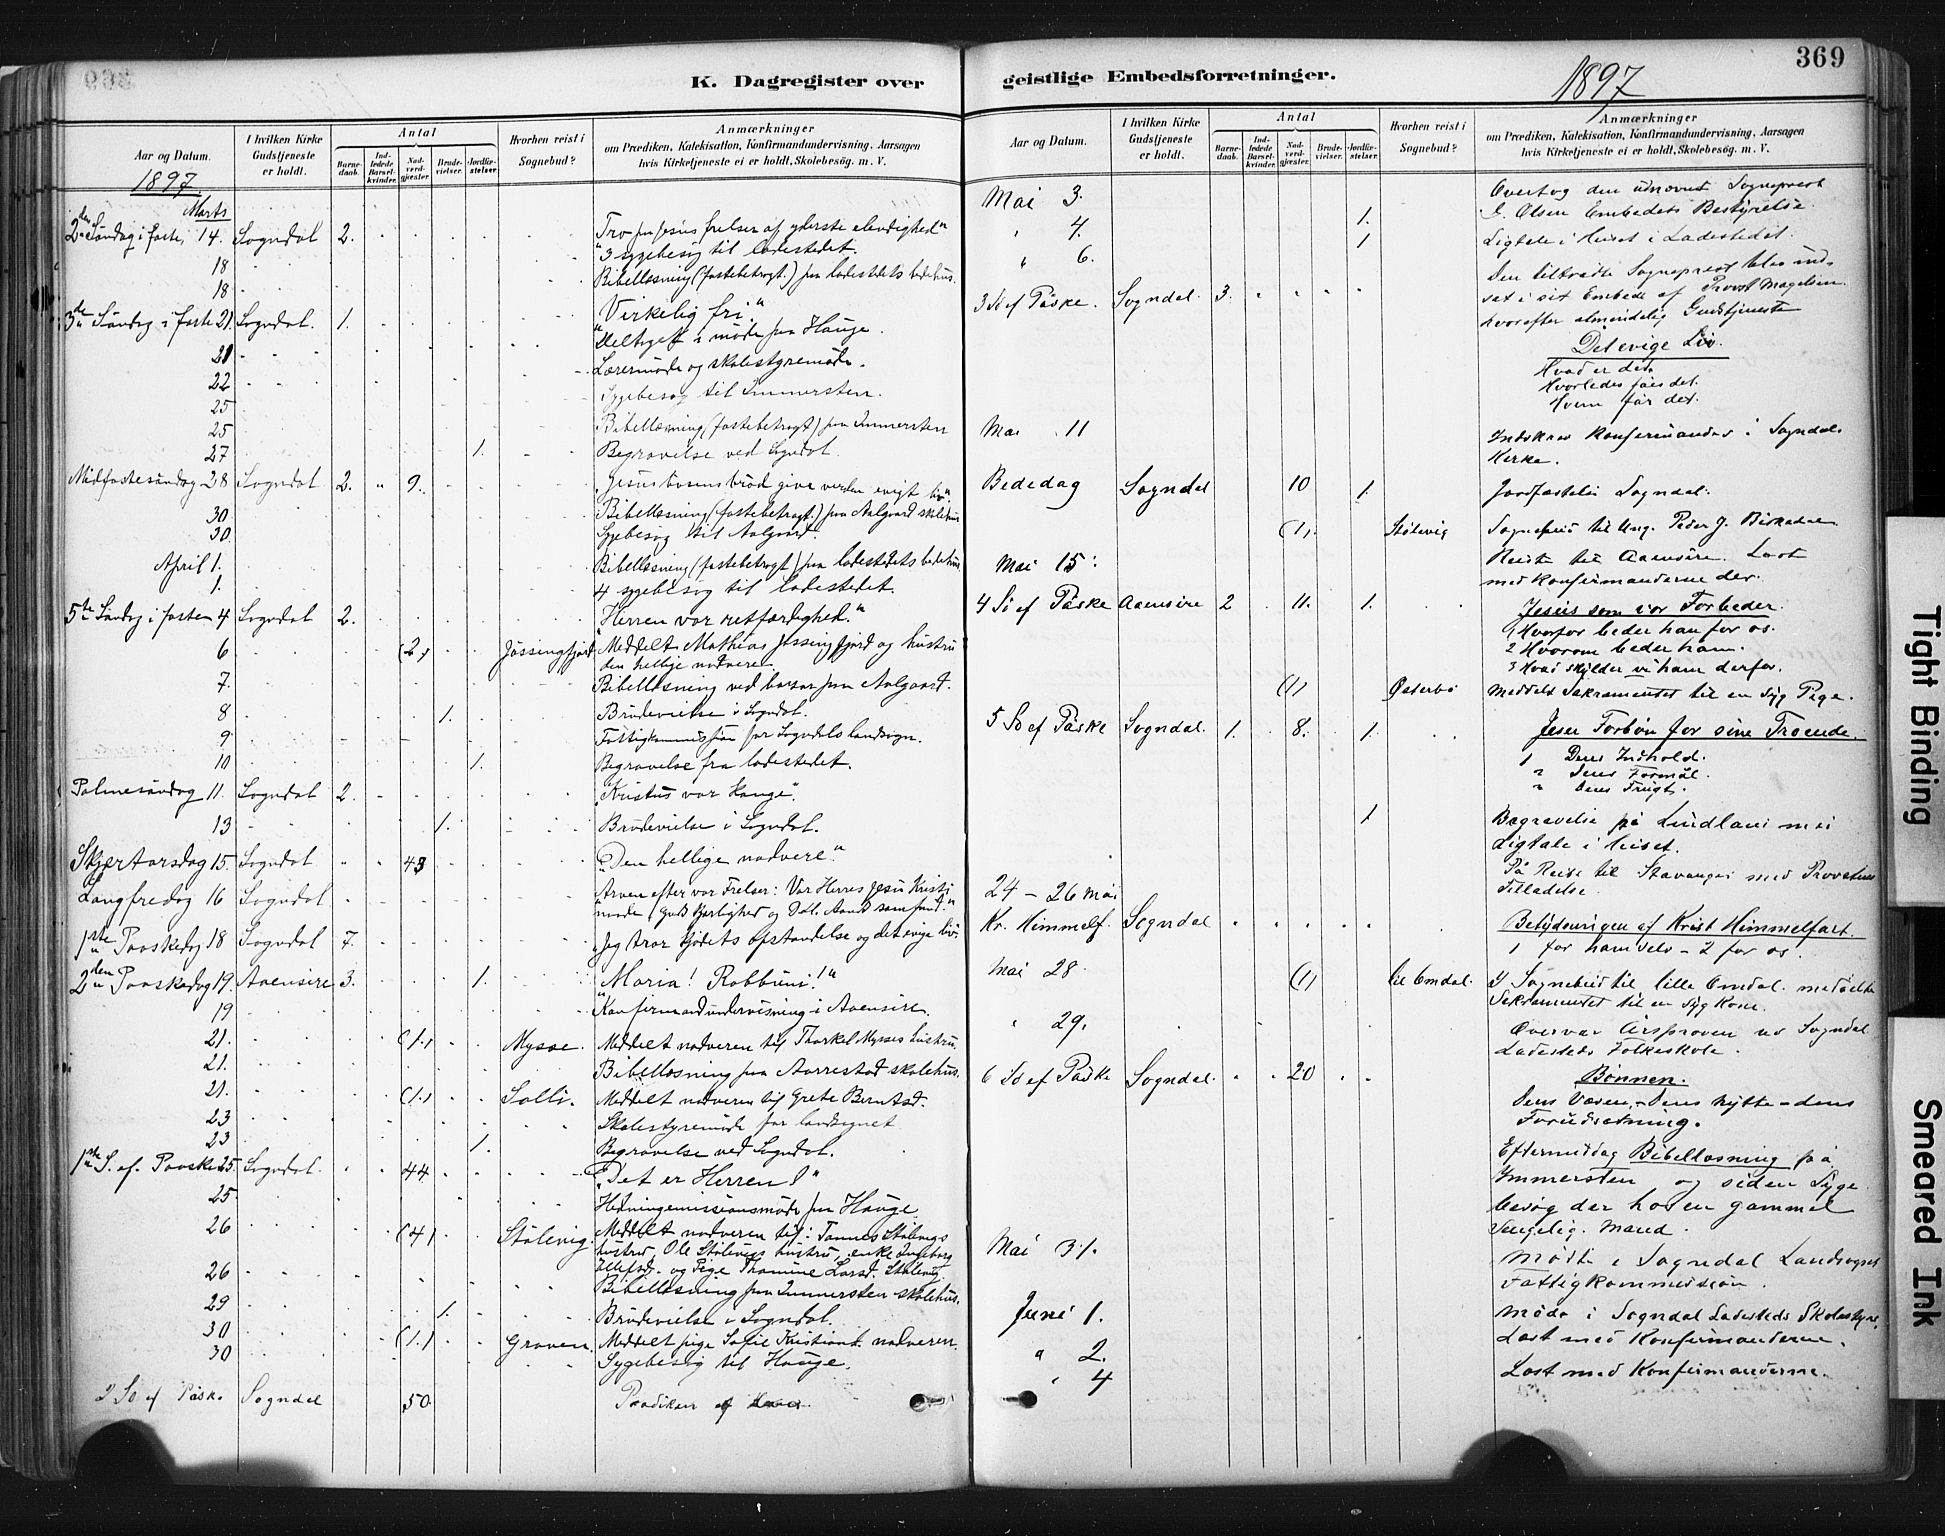 K. Dagregister over
Aar og Datum.
I hvilken Kirke Gudstjeneste er holdt.
Antal
Barne-daab.
Ind-ledede Barsel-kvinder.
Nad-verd-gjæster.
Brude-vielser.
Jordfæ-stelser.
Hvorhen reist i Sognebud?
Anmærkninger
om Prædiken, Katekisation, Konfirmandundervisning, Aarsagen
hvis Kirketjeneste ei er holdt, Skolebesøg. m. V.
1897.
Marts
2den Søndag i faste, 14. Sogndal 2. Tro paa Jesus frelser af yderste elendighed"
18 "3 sygebesøg til ladestedet.
18 Bibellæsning (fastebetragt.) paa ladestedets bedehus.
3die Søndag i faste 21. Sogndal. 1. "Virkelig fri."
21 Deltaget i møde paa Hauge.
22 Lærermøde og skolestyremøde.
25 Sygebesøg til Immersten.
25 Bibellæsning (fastebetragt) paa Immersten
27 1. Begravelse ved Sogndal.
Midfastesøndag 28 Sogndal 2. " 9. give verden evigt liv".
30 Bibellæsning (fastebetragt.) paa Aalgaard skolehus
30. Sygebesøg til Aalgaard.
April 1. Bibellæsning (fastebetragt) paa ladestedets bedehus.
1. 4 sygebesøg til ladestedet.
5te Søndag i fasten 4 Sogndal 2. "Herren vor retfærdighed."
6 (2) Jøssingfjord. Meddelt Mathias Jøssingfjord og hustru
den hellige nadvere.
7. Bibellæsning ved basar paa Aalgaard.
8 1. Brudevielse i Sogndal.
9 Fattigkommission for Sogndals landsogn.
10 1. Begravelse fra ladestedet.
Palmesøndag 11. Sogndal 2. "Kristus vor Konge".
13 1. Brudevielse i Sogndal.
Skjærtorsdag 15. Sogndal 43 "Den hellige nadvere."
Langfredag 16 Sogndal Arven efter vor Frelser: Vor Herres Jesu Kristi
naade, Guds kjærlighed og d. hl. Aands samfund."
1ste Paaskedag 18 Sogndal 7. "Jeg tror kjødets opstandelse og det evige liv".
2den Paaskedag 19. Aaensire 3. 1. "Maria! Rabbuni!"
19 Konfirmandundervisning i Aaensire.
21. (1.) Mysse. Meddelt nadveren til Thorkel Mysses hustru.
21. Bibellæsning paa Aarrestad skolehus.
21. (1.) Solli. Meddelt nadveren til Grete Berntsd.
23 Skolestyremøde for landsognet
23 1. Begravelse ved Sogndal.
1ste S. ef. Paaske 25. Sogndal. 44 "Det er Herren!"
25 Hedningemissionsmøde paa Hauge.
26 (4) Stølevig. Meddelt nadveren til: Tønnes Stølevigs
hustru, Ole Stølevigs hustru, enke Ingeborg
og Pige Thomine Larsd. Stølevig
26 Bibellæsning paa Immersten skolehus.
29 1. Brudevielse i Sogndal.
30 (1.) Graven. Meddelt pige Sofie Kristians. nadveren.
30 Sygebesøg til Hauge.
2 Sø ef Påske. Sogndal 50. Prædiken af
geistlige Embedsforretninger.
369
1897
Aar og Datum.
I hvilken Kirke Gudstjeneste er holdt.
Antal
Barne-daab.
Ind-ledede Barsel-kvinder.
Nad-verd-gjæster.
Brude-vielser.
Jordfæ-stelser.
Hvorhen reist i Sognebud?
Anmærkninger
om Prædiken, Katekisation, Konfirmandundervisning, Aarsagen
hvis Kirketjeneste ei er holdt, Skolebesøg. m. V.
Mai 3. Overtog den udnævnte Sogneprest
J. Olsen Embedets Bestyrelse.
" 4. 1. Ligtale i Huset i Ladestedet.
" 6. 1 Den tiltrædte Sogneprest blev ind-
3 Sø ef Påske. Sogndal. 3. sat i sit Embede af Provst Magelsen
hvorefter almindelig Gudstjeneste
Det evige Liv.
Hvad er det.
Hvorledes fåes det.
Hvem får det.
Mai 11 Indskrev Konfirmander i Sogndal
Kirke.
Bededag Sogndal 10 1. Jordfæstelse Sogndal.
(1). Stølevig Sognebud til Ung. Peder J. Birkedal
Mai 15. Reiste til Aaensire. Læst
med Konfirmanderne der.
4 Sø ef Påske Aaensire 2 11. 1. Jesus som vor Forbeder.
1 Hvorfor beder han for os.
2 Hvorom beder han.
3 Hvad skylder vi ham derfor.
(1) Østerbø Meddelt Sakramentet til en syg Pige.
5 Sø ef Påske Sogndal. 1. 8. 1. Jesu Forbøn for sine Troende.
1 Dens Indhold.
" Dens Formål.
" Dens Frugt.
1 Begravelse på Lindland med
Ligtale i huset.
24 - 26 Mai På Reise til Stavanger med Provstens
Tilladelse.
Kr. Himmelf. Sogndal Betydningen af Krist Himmelfart.
1 for ham selv - 2 for os.
Mai 28 (1) lil Omdal. I Sognebud til lille Omdal. meddelte
Sakramentet til en syg Kone.
" 29. Overvar Årsprøven ved Sogndal
Ladesteds Folkeskole.
6 Sø ef Påske Sogndal. 20 Bønnen.
Dens Væsen, - Dens Nytte - dens
Forudsætning.
Eftermiddag Bibellæsning på
Immersten og siden Syge-
besøg der hos en gammel
sengelig. Mand.
Mai 31. Møde i Sogndal Landsogns
Fattigkommission.
Juni 1. Møde i Sogndal Ladesteds Skolestyre.
" 2. Læst med Konfirmanderne.
" 4 Læst med Konfirmanderne.
Tight Binding
Smeared Ink